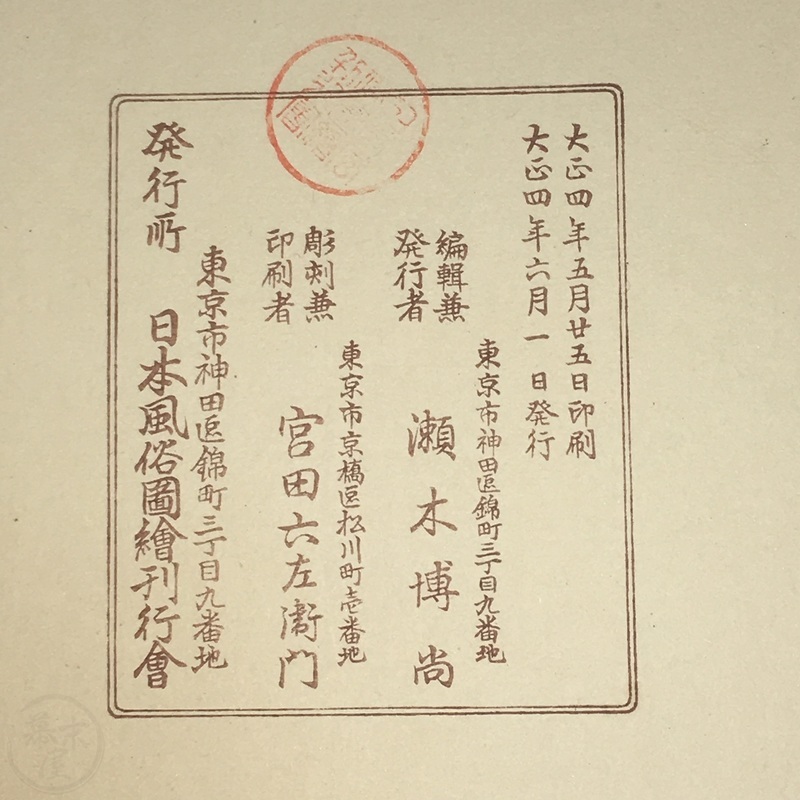 大正四年五月廿五日印刷
大正四年六月一日発行
編輯兼
発行者
東京市神田区錦町三丁目九番地
瀬木博尚
彫刻兼
印刷者
東京市京橋区松川町壱番地
宮田六左衞門
東京市神田区錦町三丁目九番地
発行所 日本風俗圖繪刊行會